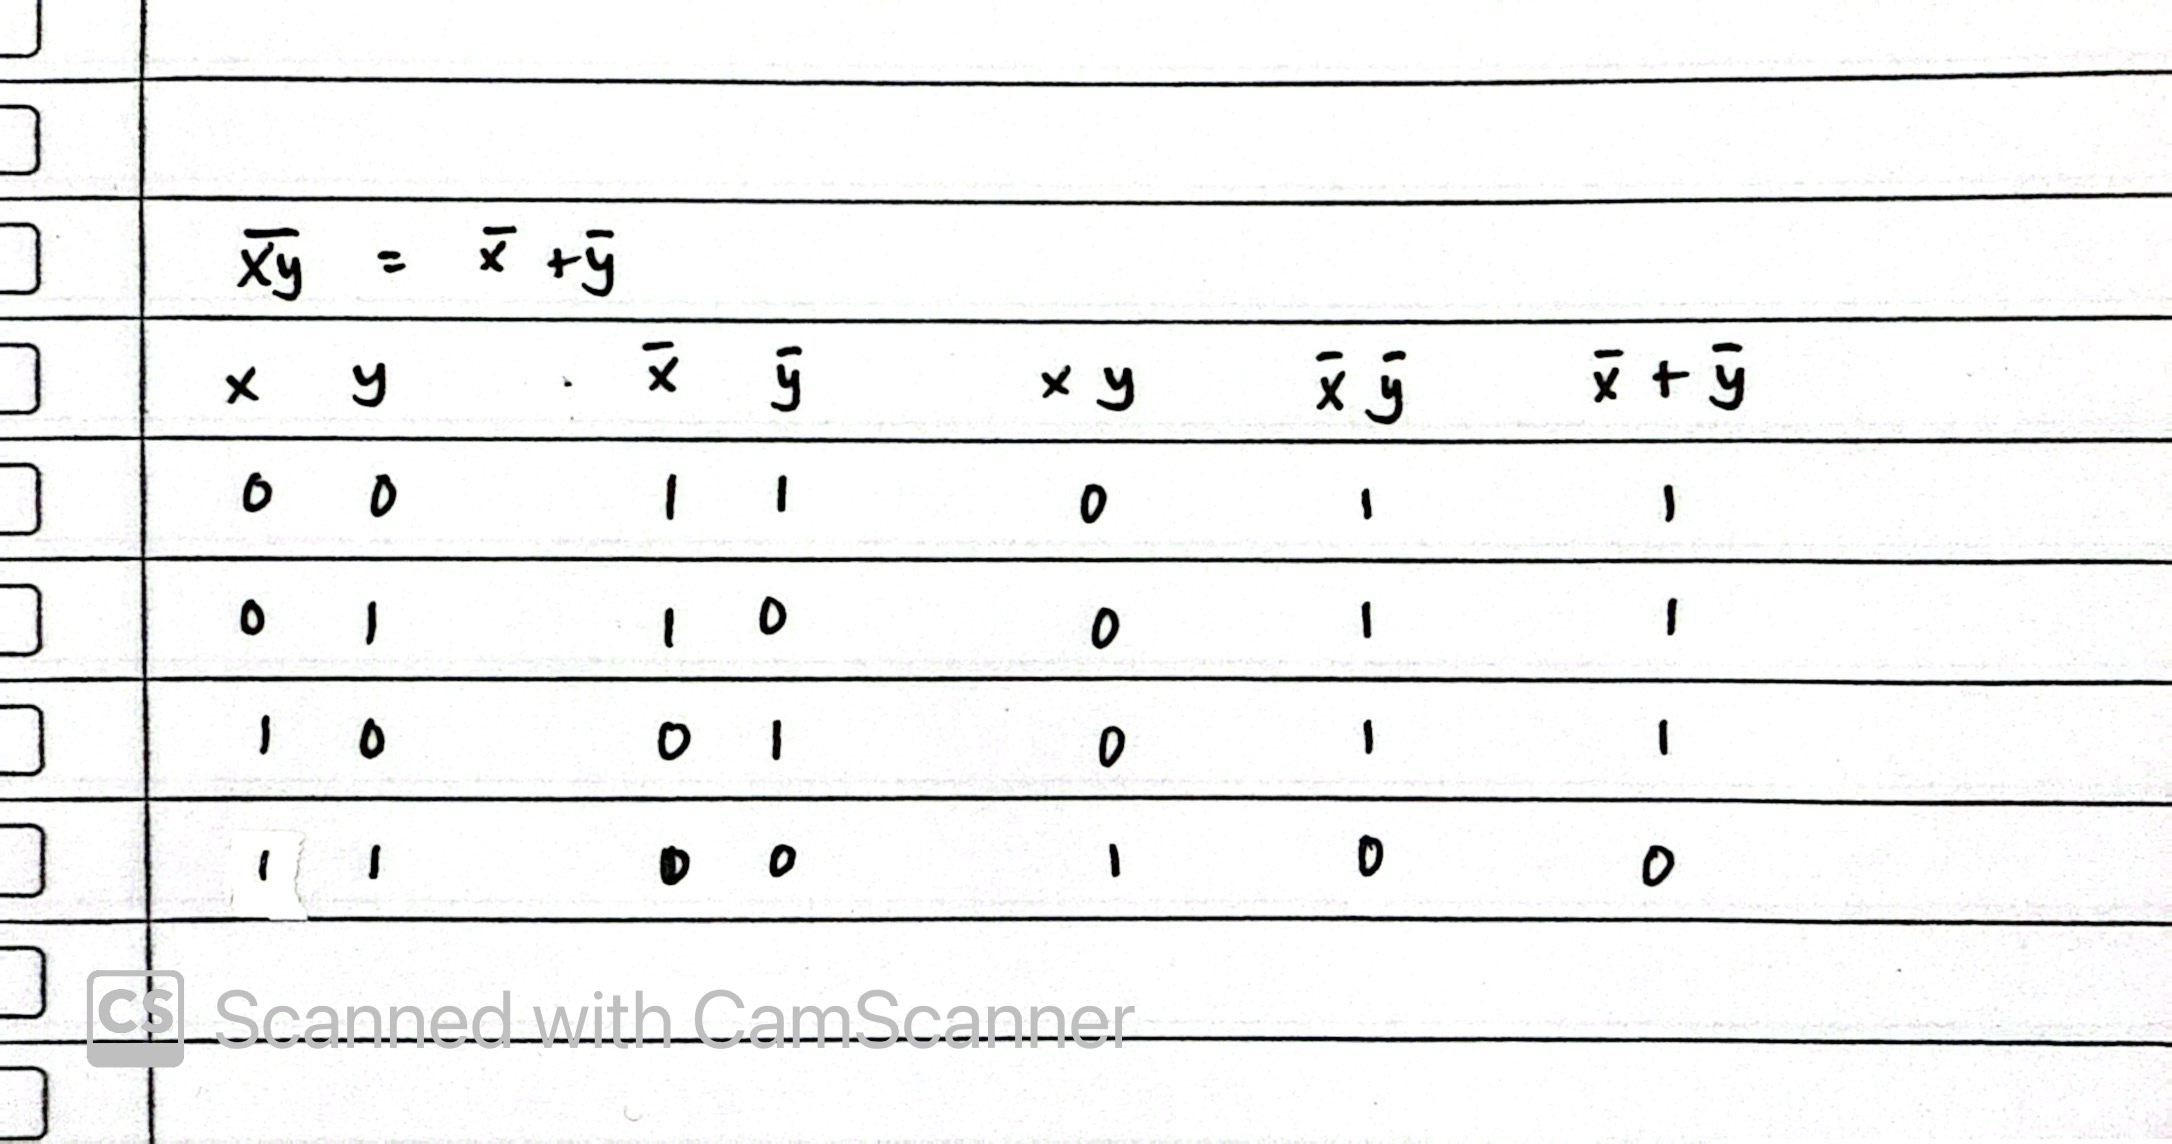 x̅y̅ = x̄ + ȳ
x y x̄ ȳ x y x̄ ȳ x̄ + ȳ
0 0 1 1 0 1 1
0 1 1 0 0 1 1
1 0 0 1 0 1 1
1 1 0 0 1 0 0
CS Scanned with CamScanner